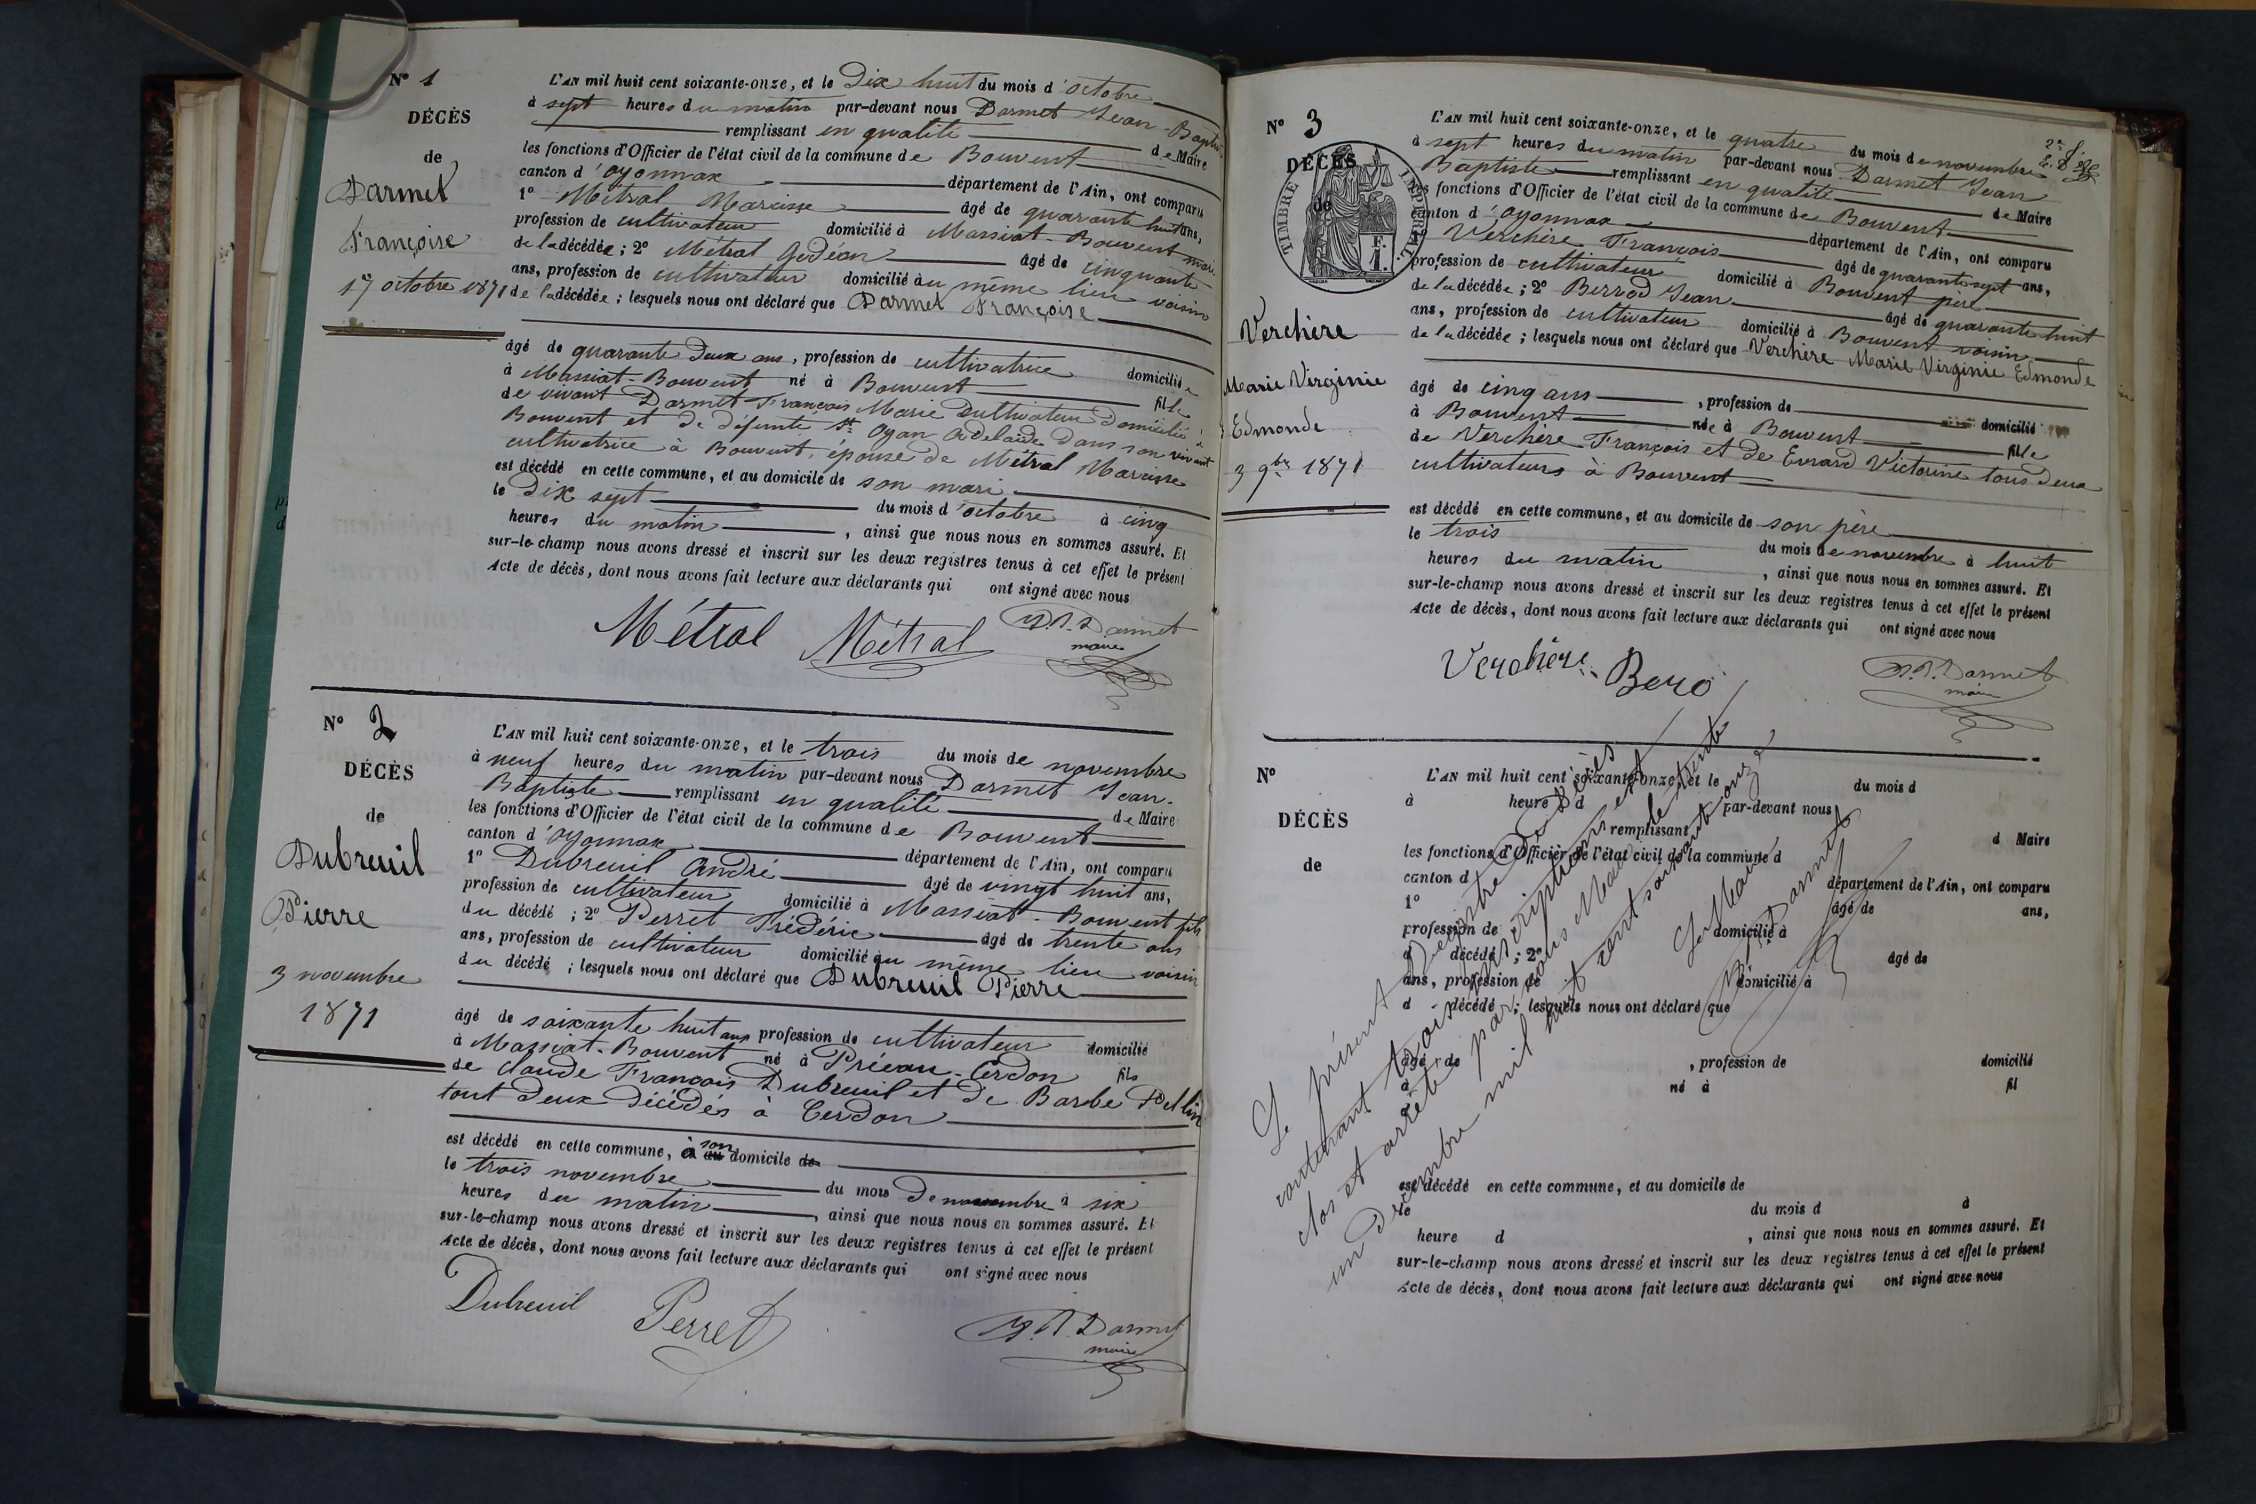 N° 1
DÉCÈS
de
Darmet
Françoise
17 octobre 1871
L'AN mil huit cent soixante-onze, et le Dix huit du mois d'octobre
à sept heures du matin par-devant nous Darmet Jean-Baptiste
remplissant en qualité de Maire
les fonctions d'Officier de l'état civil de la commune de Bouvent
canton d'oyonnax département de l'Ain, ont comparu
1° Métral Narcisse âgé de quarante huit ans,
profession de cultivateur domicilié à Massiat-Bouvent mari
de la décédée ; 2° Métral Gédéon âgé de cinquante
ans, profession de cultivateur domicilié au même lieu voisin
de la décédée ; lesquels nous ont déclaré que Darmet Françoise
âgé de quarante Deux ans, profession de cultivatrice domiciliée
à Massiat-Bouvent né à Bouvent fille
de vivant Darmet François Marie Cultivateur Domicilié à
Bouvent et de défunte St Oyan Adelaide Dans son vivant
cultivatrice à Bouvent, épouse de Métral Narcisse
est décédé en cette commune, et au domicile de son mari
le Dix sept du mois d'octobre à cinq
heures du matin, ainsi que nous nous en sommes assuré. Et
sur-le-champ nous avons dressé et inscrit sur les deux registres tenus à cet effet le présent
Acte de décès, dont nous avons fait lecture aux déclarants qui ont signé avec nous
Métral Métral J.B. Darmet
maire
N° 2
DÉCÈS
de
Dubreuil
Pierre
3 novembre
1871
L'AN mil huit cent soixante-onze, et le trois du mois de novembre
à neuf heures du matin par-devant nous Darmet Jean-
Baptiste remplissant en qualité de Maire
les fonctions d'Officier de l'état civil de la commune de Bouvent
canton d'oyonnax département de l'Ain, ont comparu
1° Dubreuil André âgé de vingt huit ans,
profession de cultivateur domicilié à Massiat-Bouvent fils
du décédé ; 2° Perret Frédéric âgé de trente ans
ans, profession de cultivateur domicilié au même lieu voisin
du décédé ; lesquels nous ont déclaré que Dubreuil Pierre
âgé de soixante huit ans profession de cultivateur domicilié
à Massiat-Bouvent né à Préau-Cerdon fils
de Claude François Dubreuil et de Barbe
tout Deux Décédés à Cerdon
est décédé en cette commune, à son domicile de
le trois novembre du mois De novembre à six
heures du matin, ainsi que nous nous en sommes assuré. Et
sur-le-champ nous avons dressé et inscrit sur les deux registres tenus à cet effet le présent
Acte de décès, dont nous avons fait lecture aux déclarants qui ont signé avec nous
Dubreuil Perret J.B. Darmet
maire
N° 3
DÉCÈS
de
TIMBRE IMPÉRIAL.
Verchère
Marie Virginie
Edmonde
3 9bre 1871
L'AN mil huit cent soixante-onze, et le quatre du mois de novembre
à sept heures du matin par-devant nous Darmet Jean
Baptiste remplissant en qualité de Maire
les fonctions d'Officier de l'état civil de la commune de Bouvent
canton d'oyonnax département de l'Ain, ont comparu
Verchère François âgé de quarante sept ans,
profession de cultivateur domicilié à Bouvent père
de la décédée ; 2° Berrod Jean âgé de quarante huit
ans, profession de cultivateur domicilié à Bouvent voisin
de la décédée ; lesquels nous ont déclaré que Verchère Marie Virginie Edmonde
âgé de cinq ans, profession de domicilié
à Bouvent née à Bouvent fille
de Verchère François et de Evrard Victorine tous Deux
cultivateurs à Bouvent
est décédé en cette commune, et au domicile de son père
le trois du mois de novembre à huit
heures du matin, ainsi que nous nous en sommes assuré. Et
sur-le-champ nous avons dressé et inscrit sur les deux registres tenus à cet effet le présent
Acte de décès, dont nous avons fait lecture aux déclarants qui ont signé avec nous
Verchère J.B. Darmet
maire
N°
DÉCÈS
de
L'AN mil huit cent soixante-onze, et le du mois d
à heure d par-devant nous
remplissant d Maire
les fonctions d'Officier de l'état civil de la commune d
canton d département de l'Ain, ont comparu
1° âgé de ans,
profession de domicilié à
d décédé ; 2° âgé de
ans, profession de domicilié à
d décédé ; lesquels nous ont déclaré que
âgé de, profession de domicilié
à né à fil
d
est décédé en cette commune, et au domicile de
le du mois d à
heure d, ainsi que nous nous en sommes assuré. Et
sur-le-champ nous avons dressé et inscrit sur les deux registres tenus à cet effet le présent
Acte de décès, dont nous avons fait lecture aux déclarants qui ont signé avec nous
Le présent Registre des Décès
contenant trois inscriptions est
clos et arrêté par nous Maire le trente
un Décembre mil huit cent soixante onze
Le Maire
J.B. Darmet